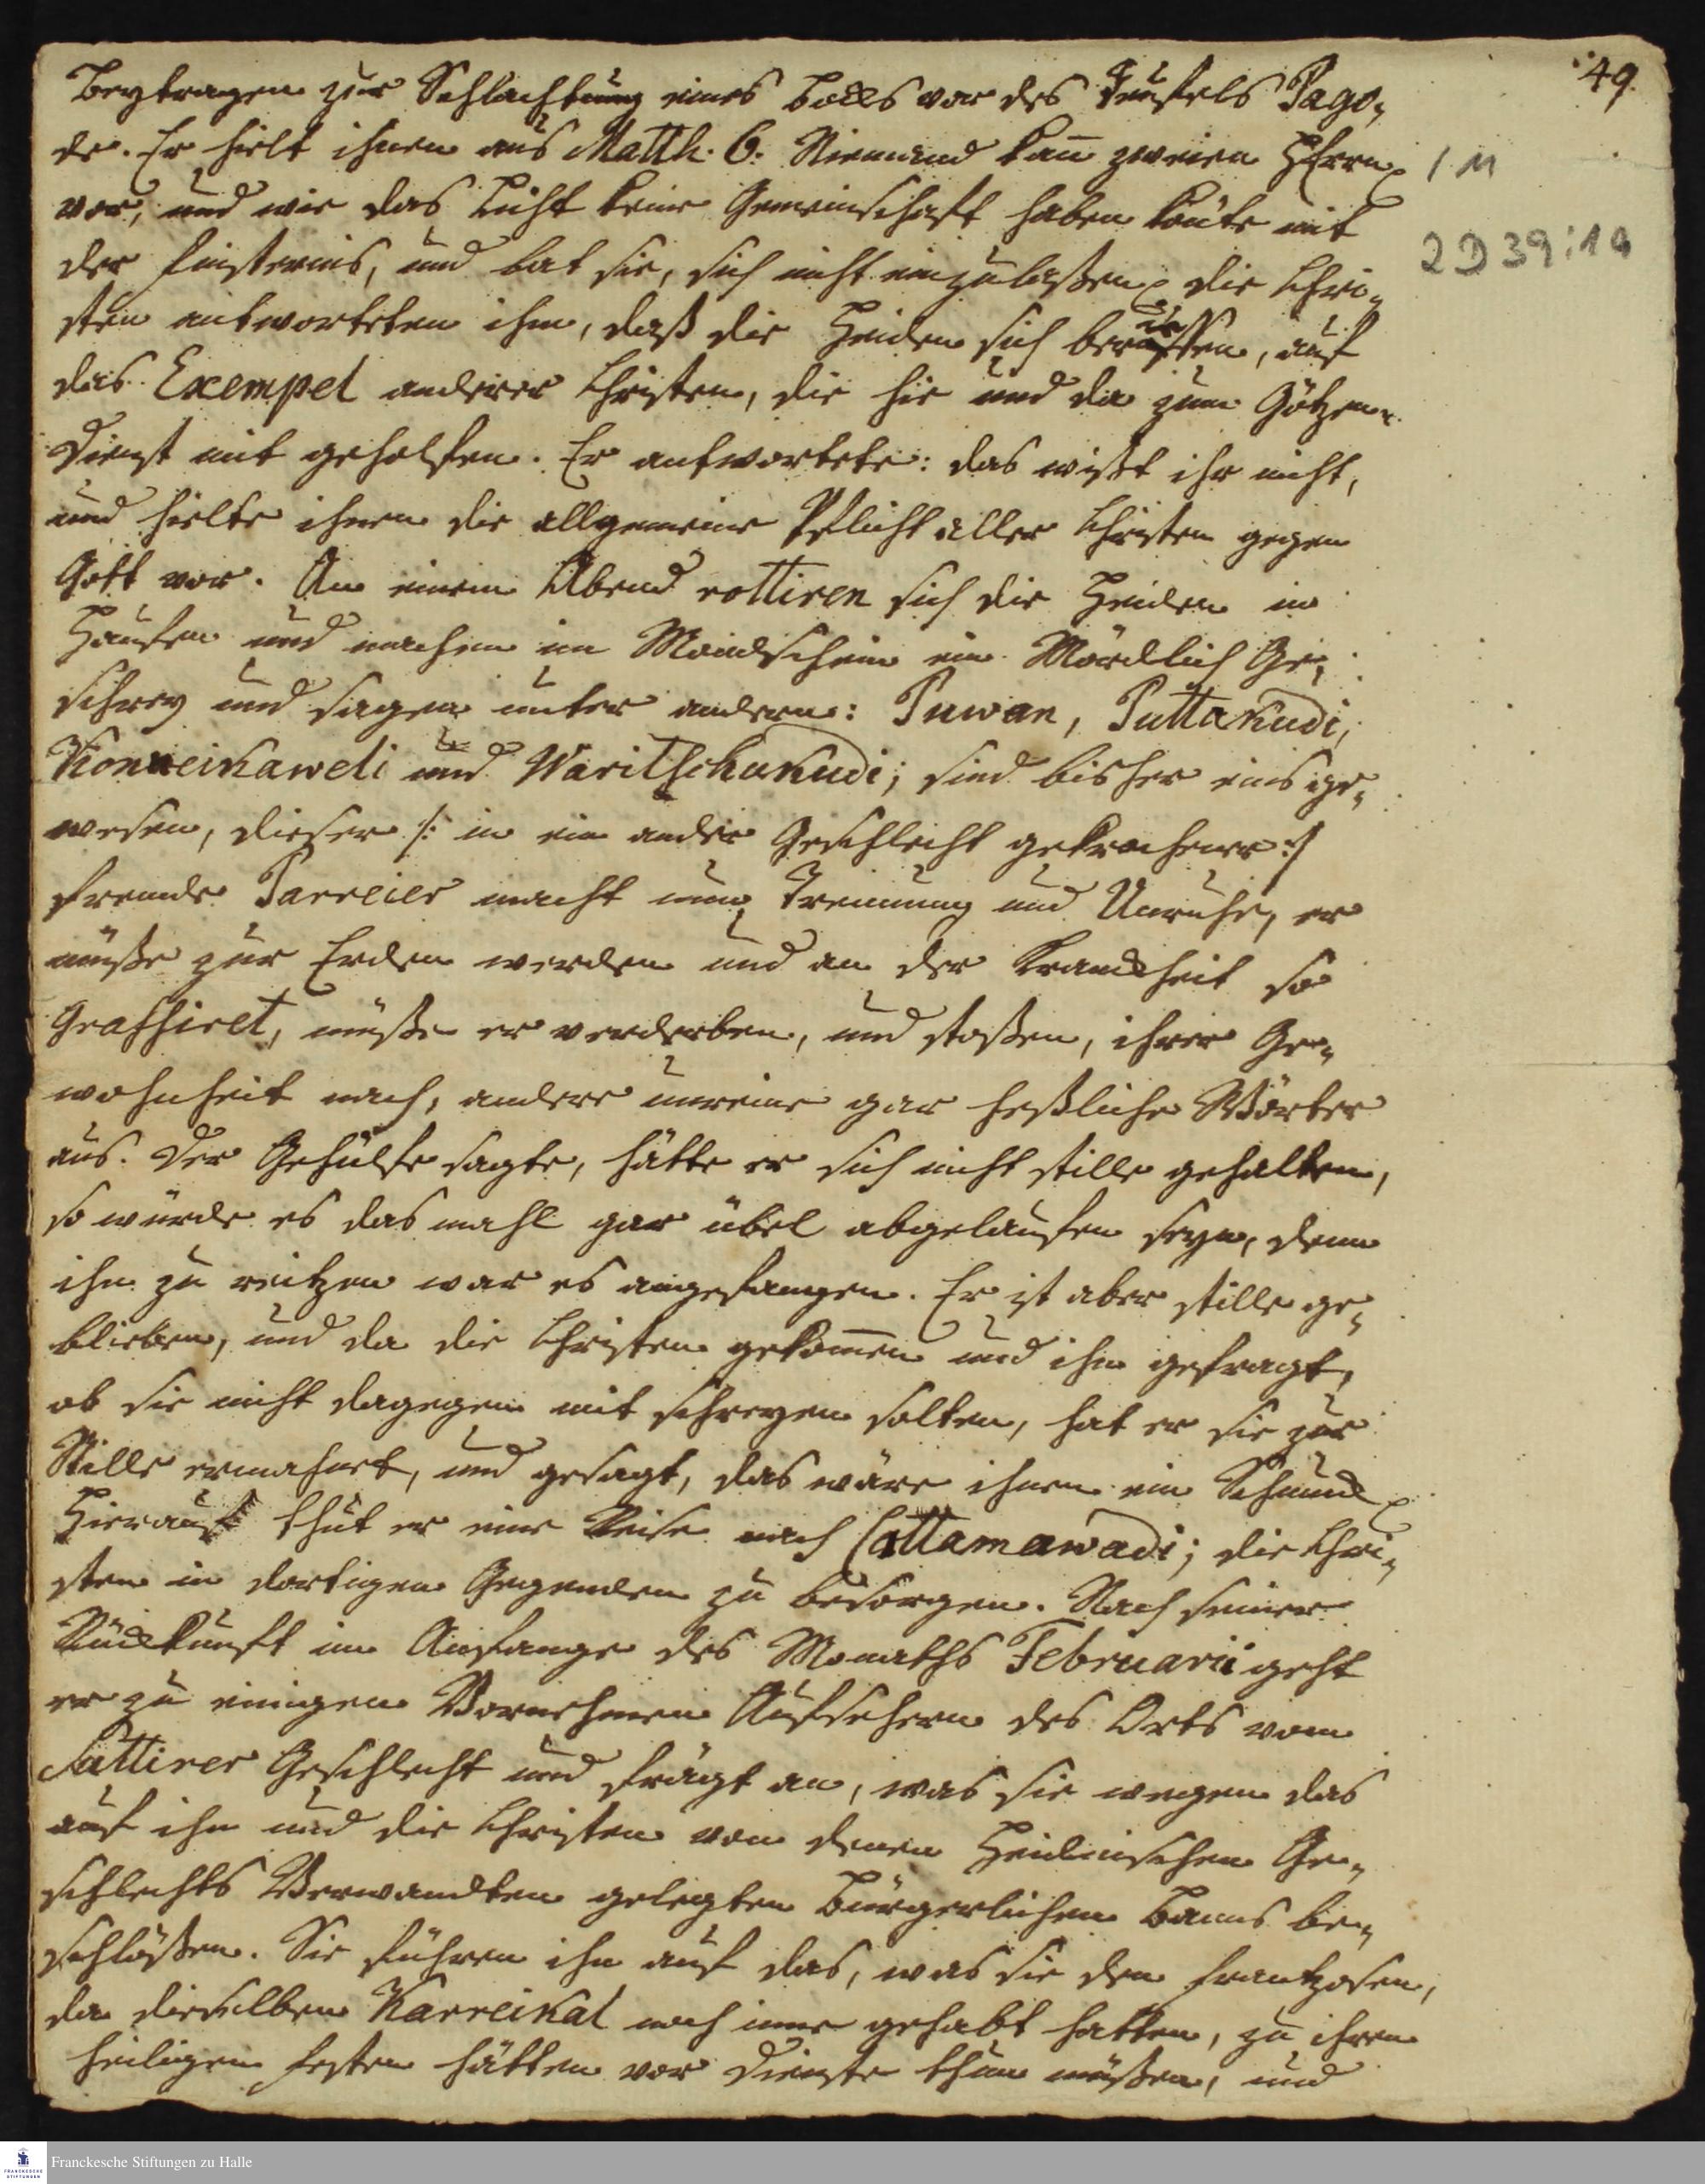 49.
Beytragen zur Schlachtung eines Bocks vor des Teufels Pago-
de. Er hielt ihnen aus Matth. 6. Niemand kan̄ zweien HErrn
vor, und wie das Licht keine Gemeinschaft haben kön̄te mit
der Finsternis, und bat sie, sich nicht einzulaßen die Chri-
sten antworteten ihm, daß die Heiden sich berieffen, auf
das Exempel anderer Christen, die hie und da zum Götzen-
dienst mit geholfen. Er antwortete: das wißt ihr nicht,
und hielte ihnen die allgemeine Pflicht aller Christen gegen
Gott vor. An einem Abend rottiren sich die Heiden in
Haufen und machen im Mondschein ein Mördlich Ge-
schrey und sagen unter andern: Puwan, Puttakudi,
Konneikaweli und Waritschakudi; sind bisher eins ge-
wesen, dieser /: in ein ander Geschlecht gekrochene :/
fremde Parreier macht nun Trennung und Unruhe, er
müße zur Erden werden und an der Kranckheit so
Grassiret, müße er verderben, und stoßen, ihrer Ge-
wohnheit nach, andere unreine gar heßliche Wörter
aus. Der Gehülfe sagte, hätte er sich nicht stille gehalten,
so würde es das mahl gar übel abgelaufen seyn, denn
ihn zu reitzen war es angefangen. Er ist aber stille ge-
blieben, und da die Christen gekom̄en und ihn gefragt,
ob sie nicht dagegen mit schreyen solten, hat er sie zur
Stille ermahnet, und gesagt, das wäre ihnen ein Schmuck
Hierauf thut er eine Reise nach Cattamawadi; die Chri-
sten in dortigen Gegenden zu besorgen. Nach seiner
Rückkunft im Anfange des Monaths Februarii geht
er zu einigen Vornehmen Aufsehern des Orts vom
Sattirer Geschlecht und frägt an, was sie wegen das
auf ihn und die Christen von denen Heidnischen Ge-
schlechts Verwandten gelegten bürgerlichen Banns be-
schlößen. Sie führen ihn auf das, was sie den Frantzosen,
da dieselben Karreikal noch inne gehabt hatten, zu ihren
heiligen Festen hätten vor Dienste thun müßen, und
1 M
2 D 39:14
Franckesche Stiftungen zu Halle